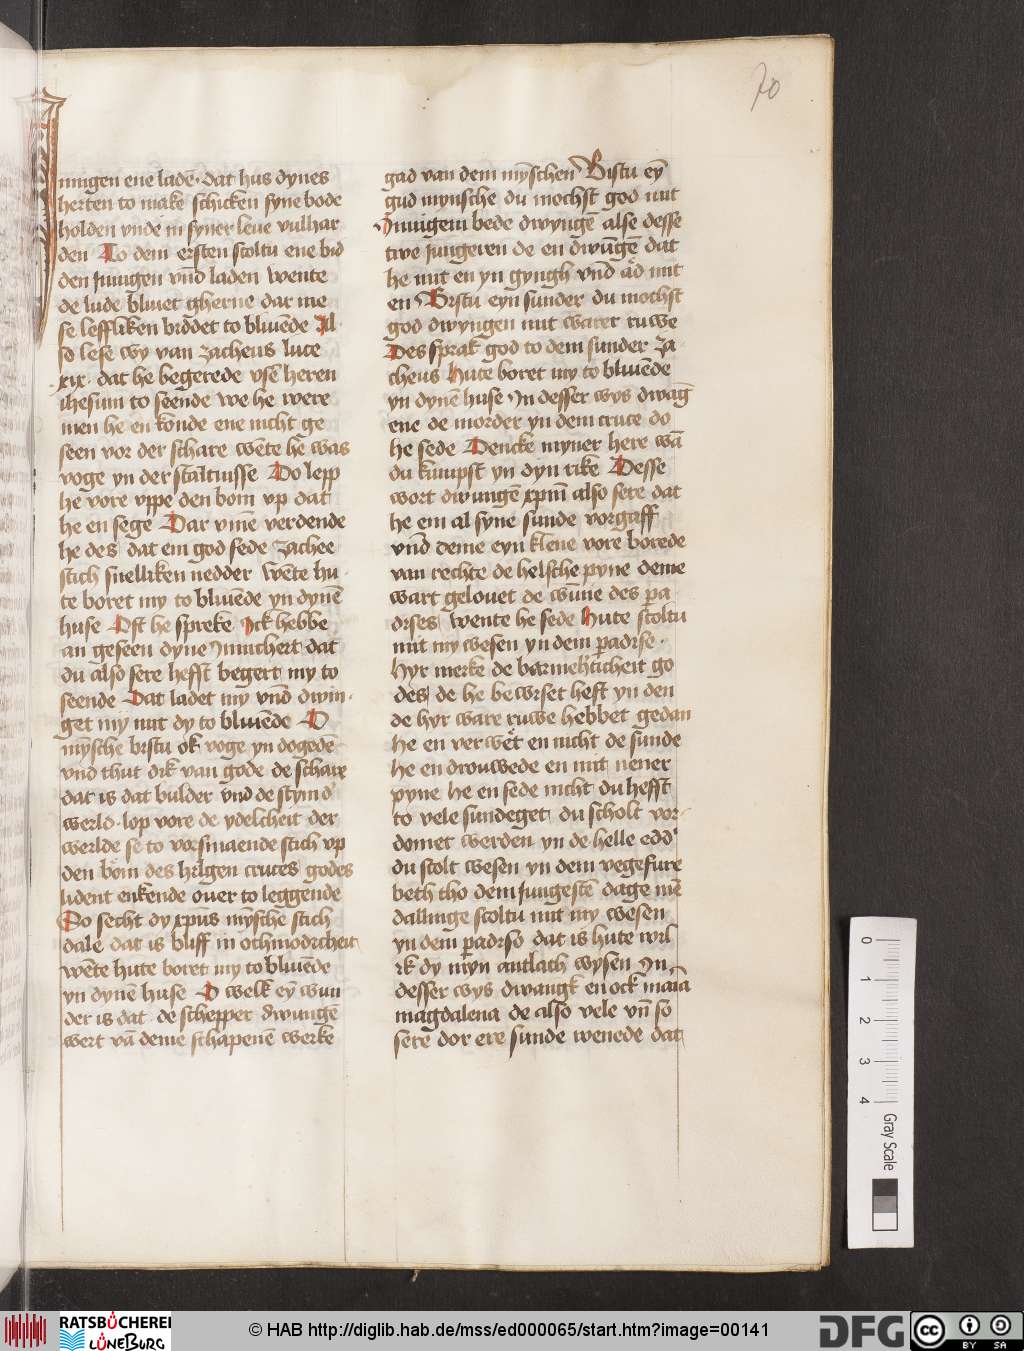 70
nnigen ene ladē. dat hus dynes
herten to make schicken syne bode
holden vnde in syner leue vulhar
den To dem ersten scoltu ene bid
den jnnigen vn̄d laden wente
de lude bliuet gherne dar me
se leffliken biddet to bliuēde Al
so lese wy van zacheus luce
xix. dat he begerede vsē heren
ihesum to seende we he were
men he en konde ene nicht ge
seen vor der schare wēte he was
voge yn der staltnisse Do lepp
he vore vppe den bom vp dat
he en sege Dar vmē verdende
he des dat em god sede zachee
stich snelliken nedder wēte hu
te boret my to bliuēde yn dynē
huse Oft he spreke Ick hebbe
an geseen dyne Innicheit dat
du also sere hefft begert my to
seende Dat ladet my vn̄d dwin
get my mit dy to bliuēde O
mȳsche bistu ok voge yn dogedē
vnd thut dik van gode de schare
dat is dat bulder vnd de stym d'
werld. lop vore de ydelcheit der
werlde se to vorsmaende stich vp
den bom des hilgen cruces godes
lident enkende ouer to leggende
So secht dy xp̄us mȳsche stich
dale dat is bliff in othmodicheit
wēte hute boret my to bliuēde
yn dynē huse O welk eȳ wun
der is dat de schepper dwungē
wert vā deme schapenē werke
gad van dem mȳschen Bistu eȳ
gud mynsche du mochst god mit
Innigem bede dwyngē alse desse
twe jungeren de en dwūgē dat
he mit en yn gyngh vn̄d ād mit
en Bistu eyn sunder du mochst
god dwyngen mit warer ruwe
Des sprak god to dem sunder za
cheus Hute boret my to bliuēde
yn dynē huse In desser wys dwāg
ene de morder yn dem cruce do
he sede Dencke myner here wā
du kumpst yn dyn rike Desse
wort dwungē xp̄m also sere dat
he em al syne sunde vorgaff
vn̄d deme eyn klene vore borede
van rechte de helsche pyne deme
wart gelouet de wūne des pa
dises wente he sede Hute scoltu
mit my wesen yn dem padise.
Hyr merke de barmeh'ticheit go
des de he bewiset heft yn den
de hyr ware ruwe hebbet gedan
He en verwet en nicht de sunde
He en drouwede en mit nener
pyne he en sede nicht du hefft
to vele sundeget du scholt vor
domet werden yn de helle edd'
du scolt wesen yn dem vegefure
beth tho dem jungestē dage mē
dallinge scoltu mit my wesen
yn dem padiso dat is hute wil
ik dy myn antlach wysen In
desser wys dwangk en ock maria
magdalena de also vele vn̄ so
sere dor ere sunde wenede dat
0 1 2 3 4 Gray Scale
RATSBÜCHEREI LÜNEBURG
© HAB http://diglib.hab.de/mss/ed000065/start.htm?image=00141
DFG
cc BY SA